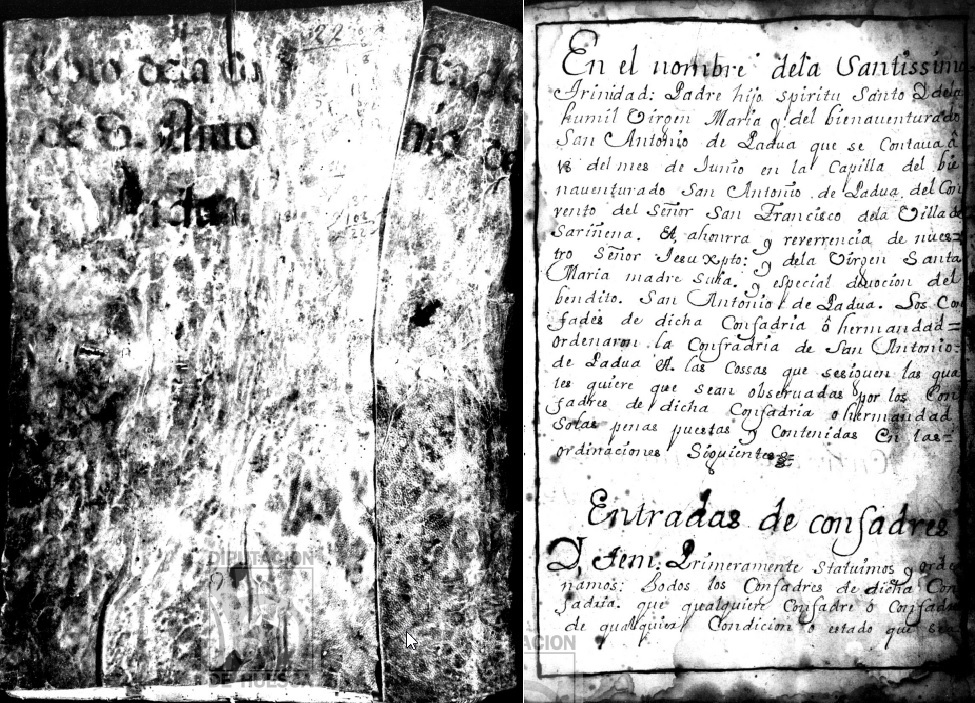 Libro de la
de S. Anto nio de
Padua
En el nombre dela Santissima
Trinidad: Padre hijo spiritu Santo Y dela
humil Virgen Maria y del bienaventurado
San Antonio de Padua que se Contaua â
del mes de Junio en la Capilla del bie
naventurado San Antonio de Padua del Con
vento del Señor San Francisco dela Villa de
Sariñena. A ahonrra y reverrencia de nues=
tro Señor Jesu xpto: y dela Virgen Santa
Maria madre suia. y especial devocion del
bendito. San Antonio de Padua. Los Con
fades de dicha Confadria ô hermandad=
ordenaron la Confradria de San Antonio=
de Padua A las Cossas que sesiguen las qua
les quiere que sean obseruadas por los Con
fadres de dicha Confadria o hermandad
Solas penas puestas y Contenidas En las=
ordinaciones Siguientes
Entradas de confadres
Y, Item: Primeramente Statuimos y orde
namos: todos los Confadres de dicha Con
fadria. que qualquier Confadre ô Confadre
de qualquier Condicion o estado que sea
DIPUTACION
DE HUESCA
ACION